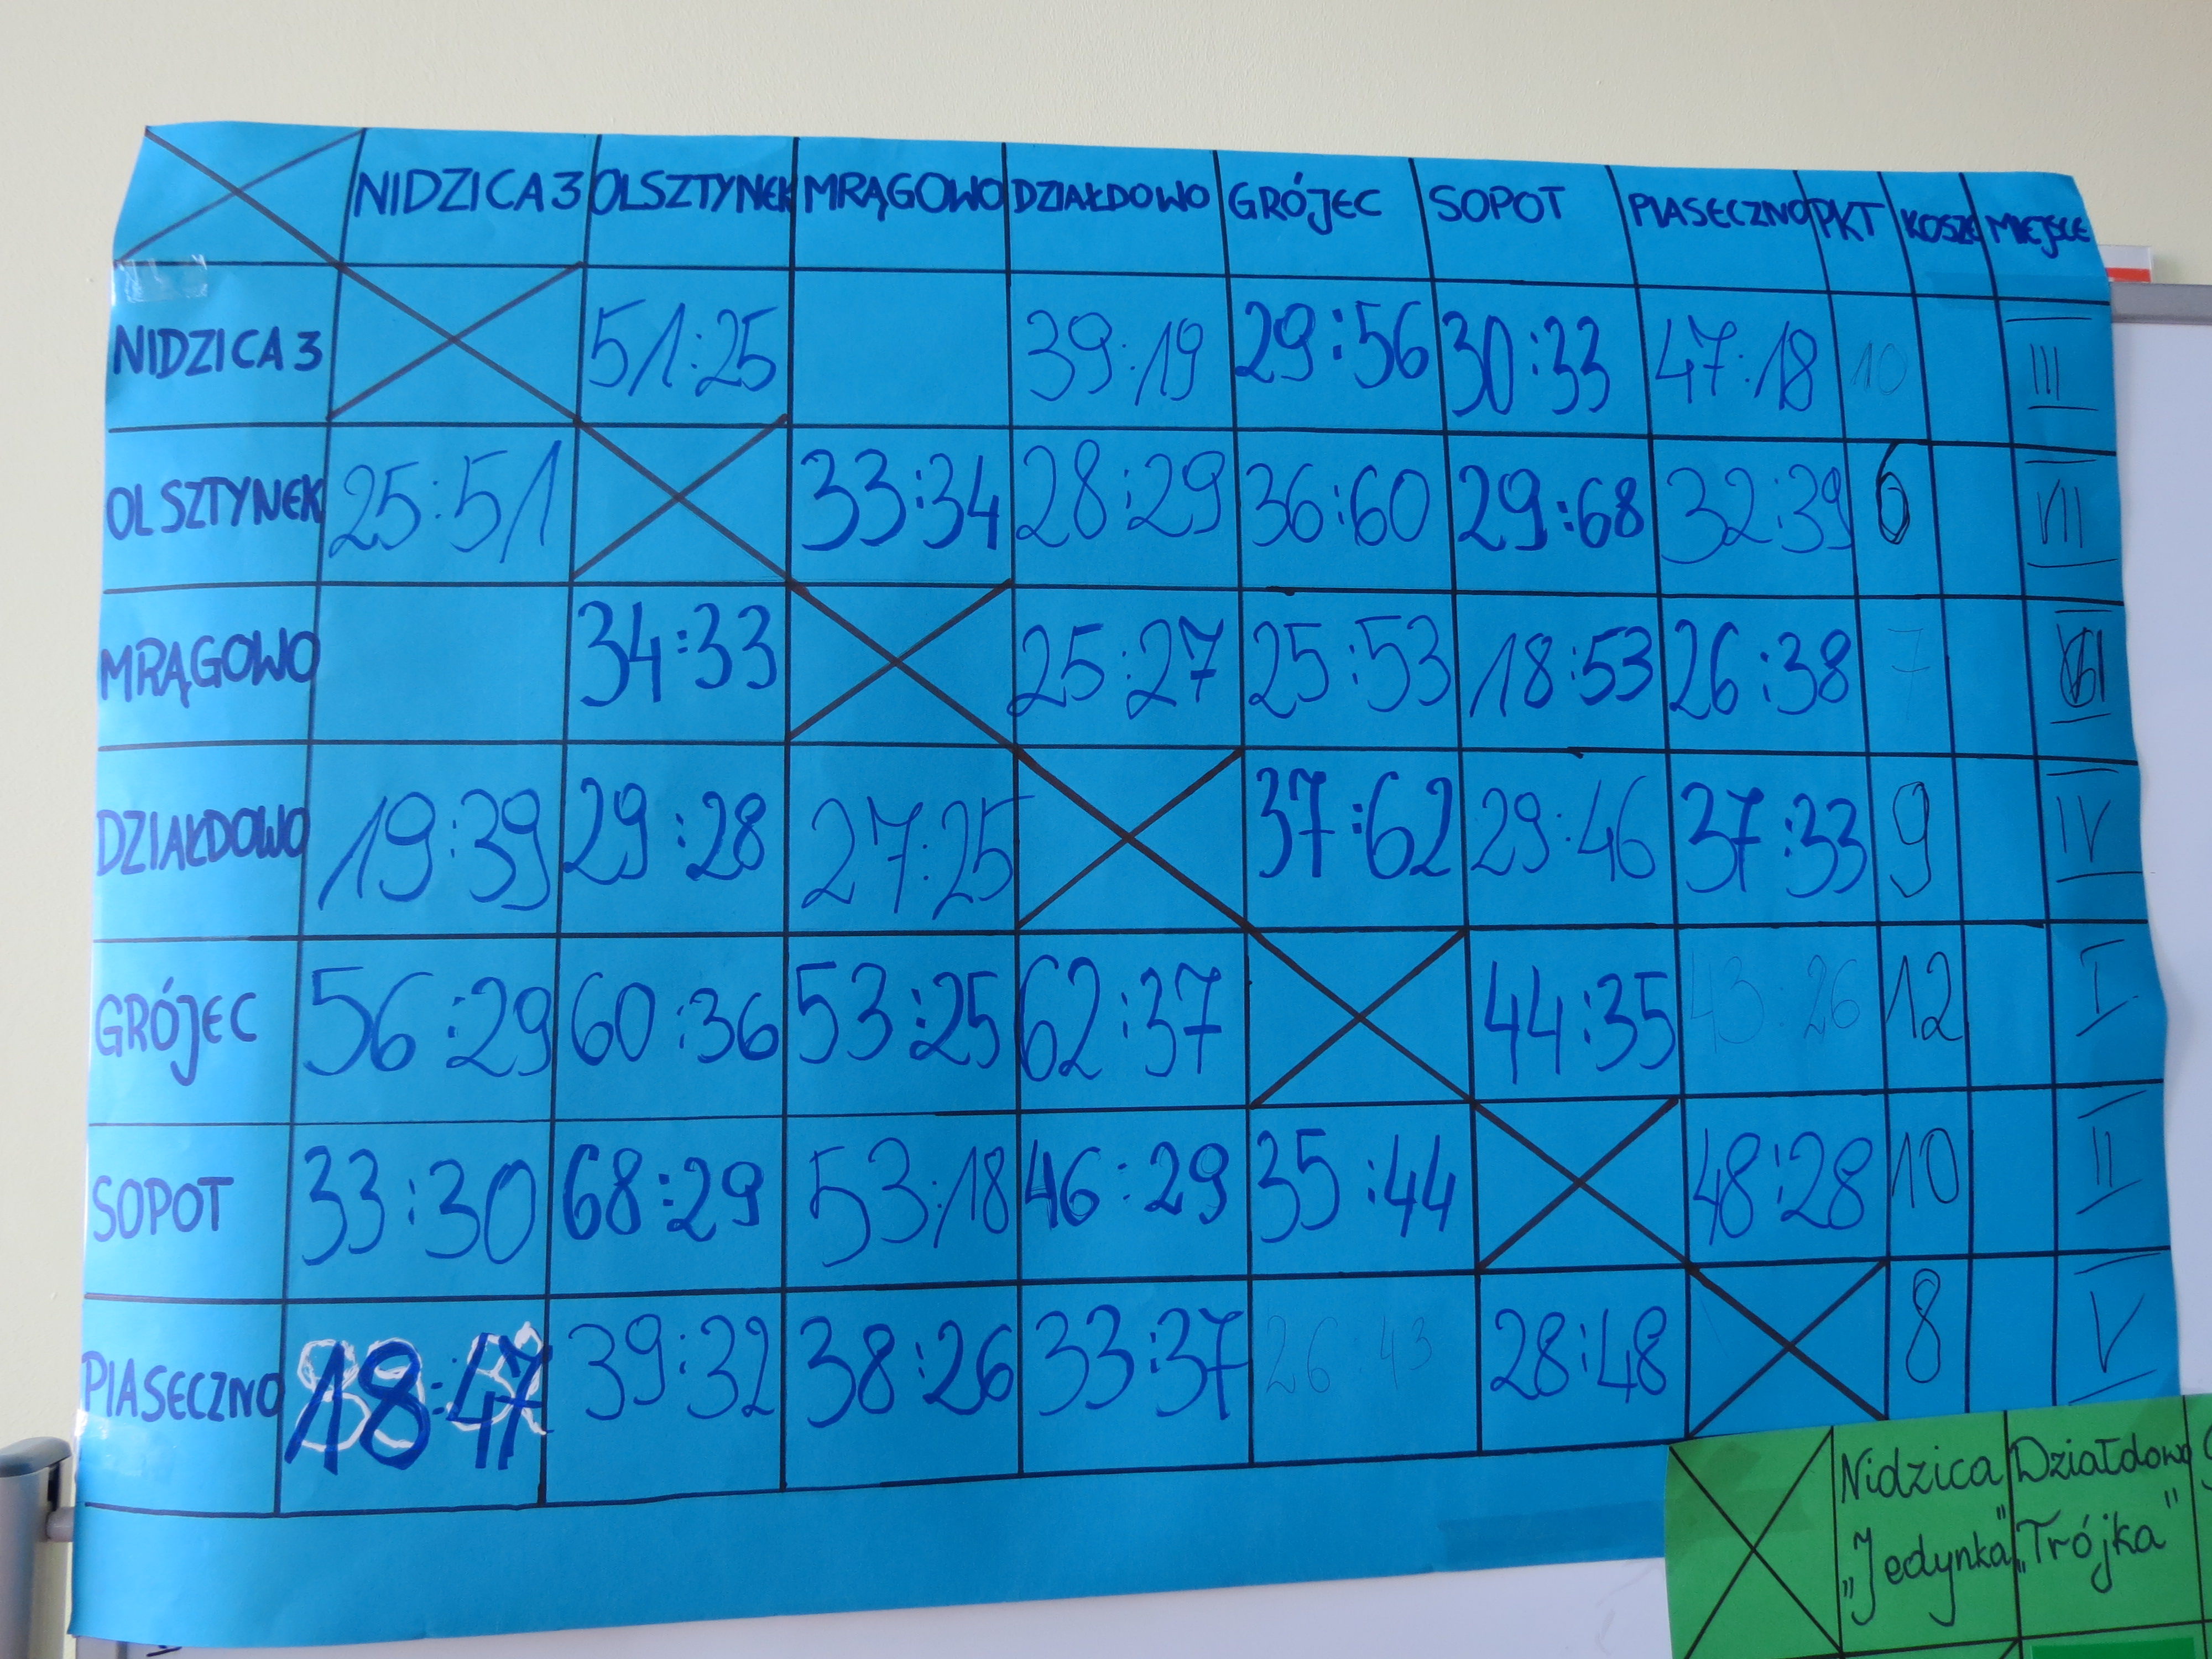 NIDZICA 3 OLSZTYNEK MRĄGOWO DZIAŁDOWO GRÓJEC SOPOT PIASECZNO PKT KOSZE MIEJSCE
NIDZICA 3 51:25 39:19 29:56 30:33 47:18 10 III
OLSZTYNEK 25:51 33:34 28:29 36:60 29:68 32:39 6 VII
MRĄGOWO 34:33 25:27 25:53 18:53 26:38 7 VI
DZIAŁDOWO 19:39 29:28 27:25 37:62 29:46 37:33 9 IV
GRÓJEC 56:29 60:36 53:25 62:37 44:35 43:26 12 I
SOPOT 33:30 68:29 53:18 46:29 35:44 48:28 10 II
PIASECZNO 18:47 39:32 38:26 33:37 26:43 28:48 8 V
Nidzica Działdowo
„Jedynka" „Trójka"